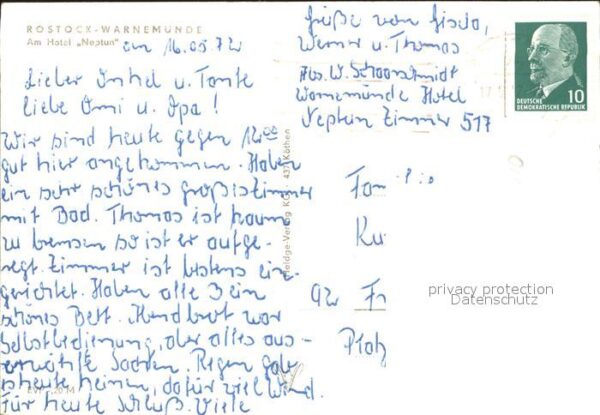 ROSTOCK-WARNEMÜNDE
Am Hotel „Neptun"
am 16.05.72
Lieber Onkel u. Tante
liebe Omi u. Opa!
Wir sind heute gegen 1200
gut hier angekommen. Haben
ein sehr schönes großes Zimmer
mit Bad. Thomas ist kaum
zu bremsen so ist er aufge-
regt. Zimmer ist bestens ein-
gerichtet. Haben alle 3 ein
schönes Bett. Abendbrot war
Selbstbedienung, aber alles aus-
erwählte Sachen. Regen gab
es heute keinen, dafür viel Wind.
Für heute Schluß. Viele
Grüße von Gisela,
Werner u. Thomas
Abs. W. Schaarschmidt
Warnemünde Hotel
Neptun Zimmer 517
10
DEUTSCHE
DEMOKRATISCHE REPUBLIK
Fam
Ku
92 Fr
Platz
437 Köthen
EVP 20 M
privacy protection
Datenschutz